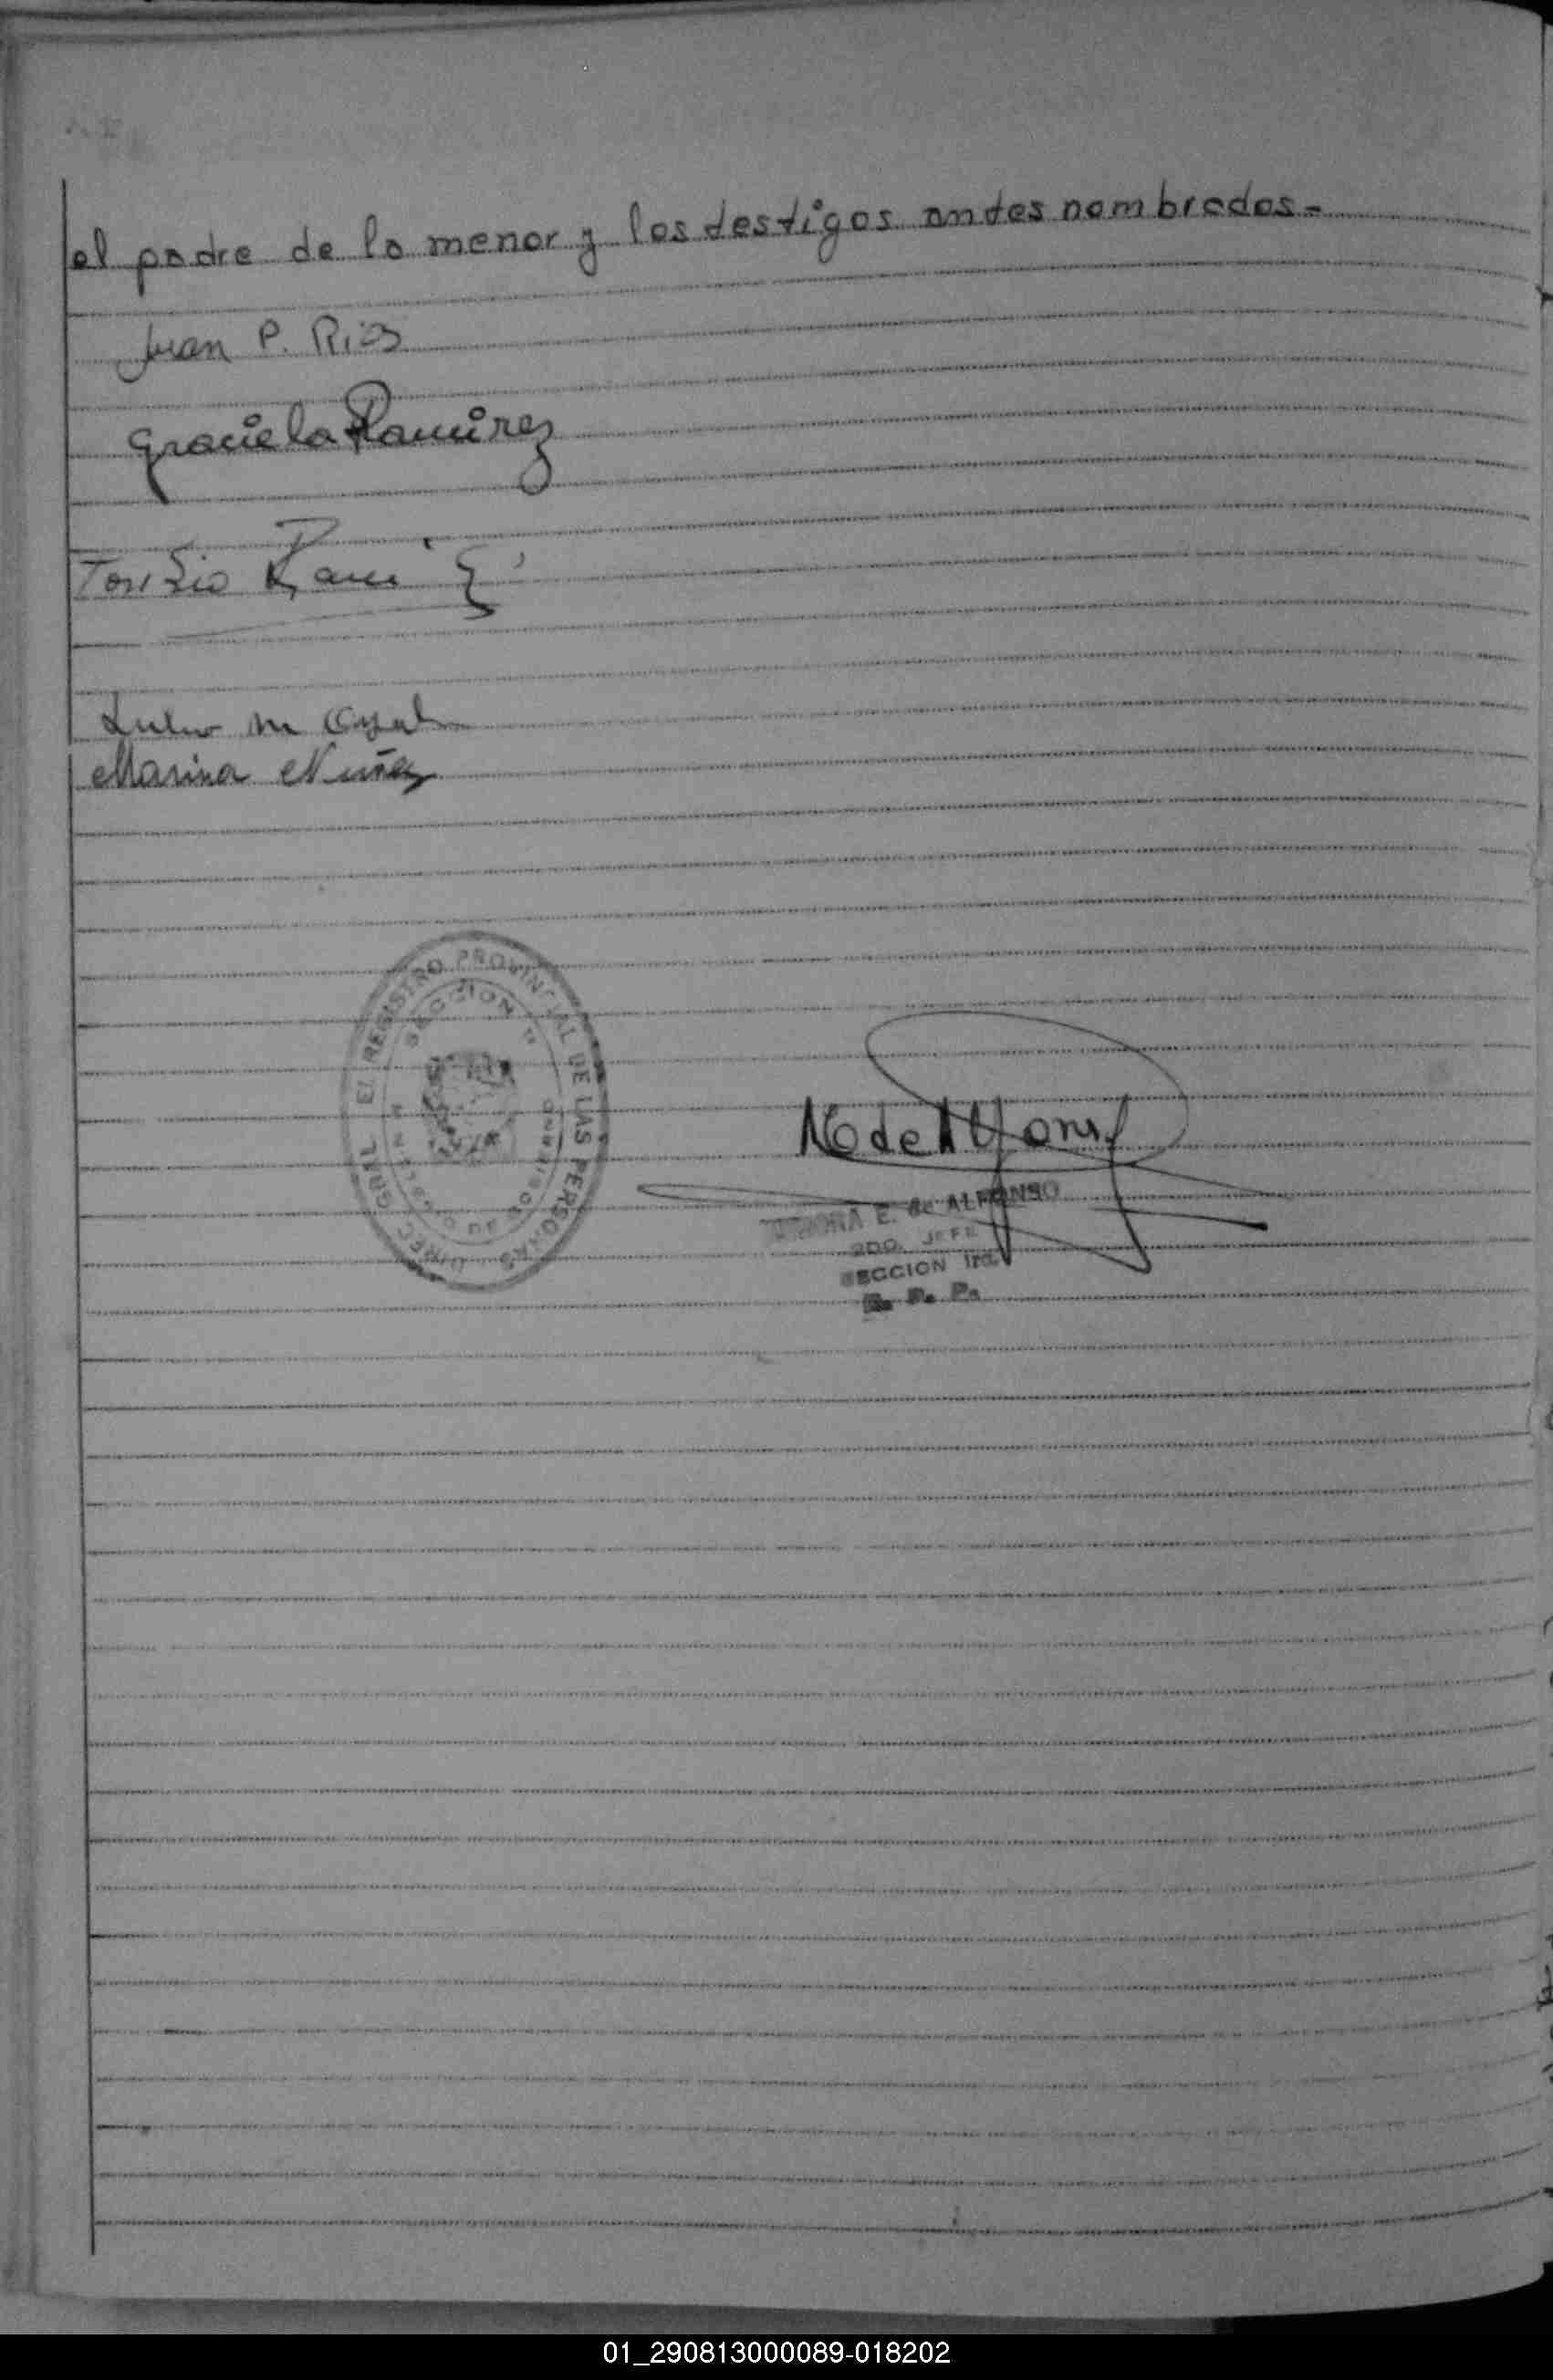 el padre de la menor y los testigos antes nombrados.-
Juan P. Rios
Graciela Ramirez
Rami
Marina Nuñez
DIREC. GRAL. EL REGISTRO PROVINCIAL DE LAS PERSONAS
SECCION
MINISTERIO DE GOBIERNO
E. de ALFONSO
2DO. JEFE
SECCION
R. P. P.
01_290813000089-018202